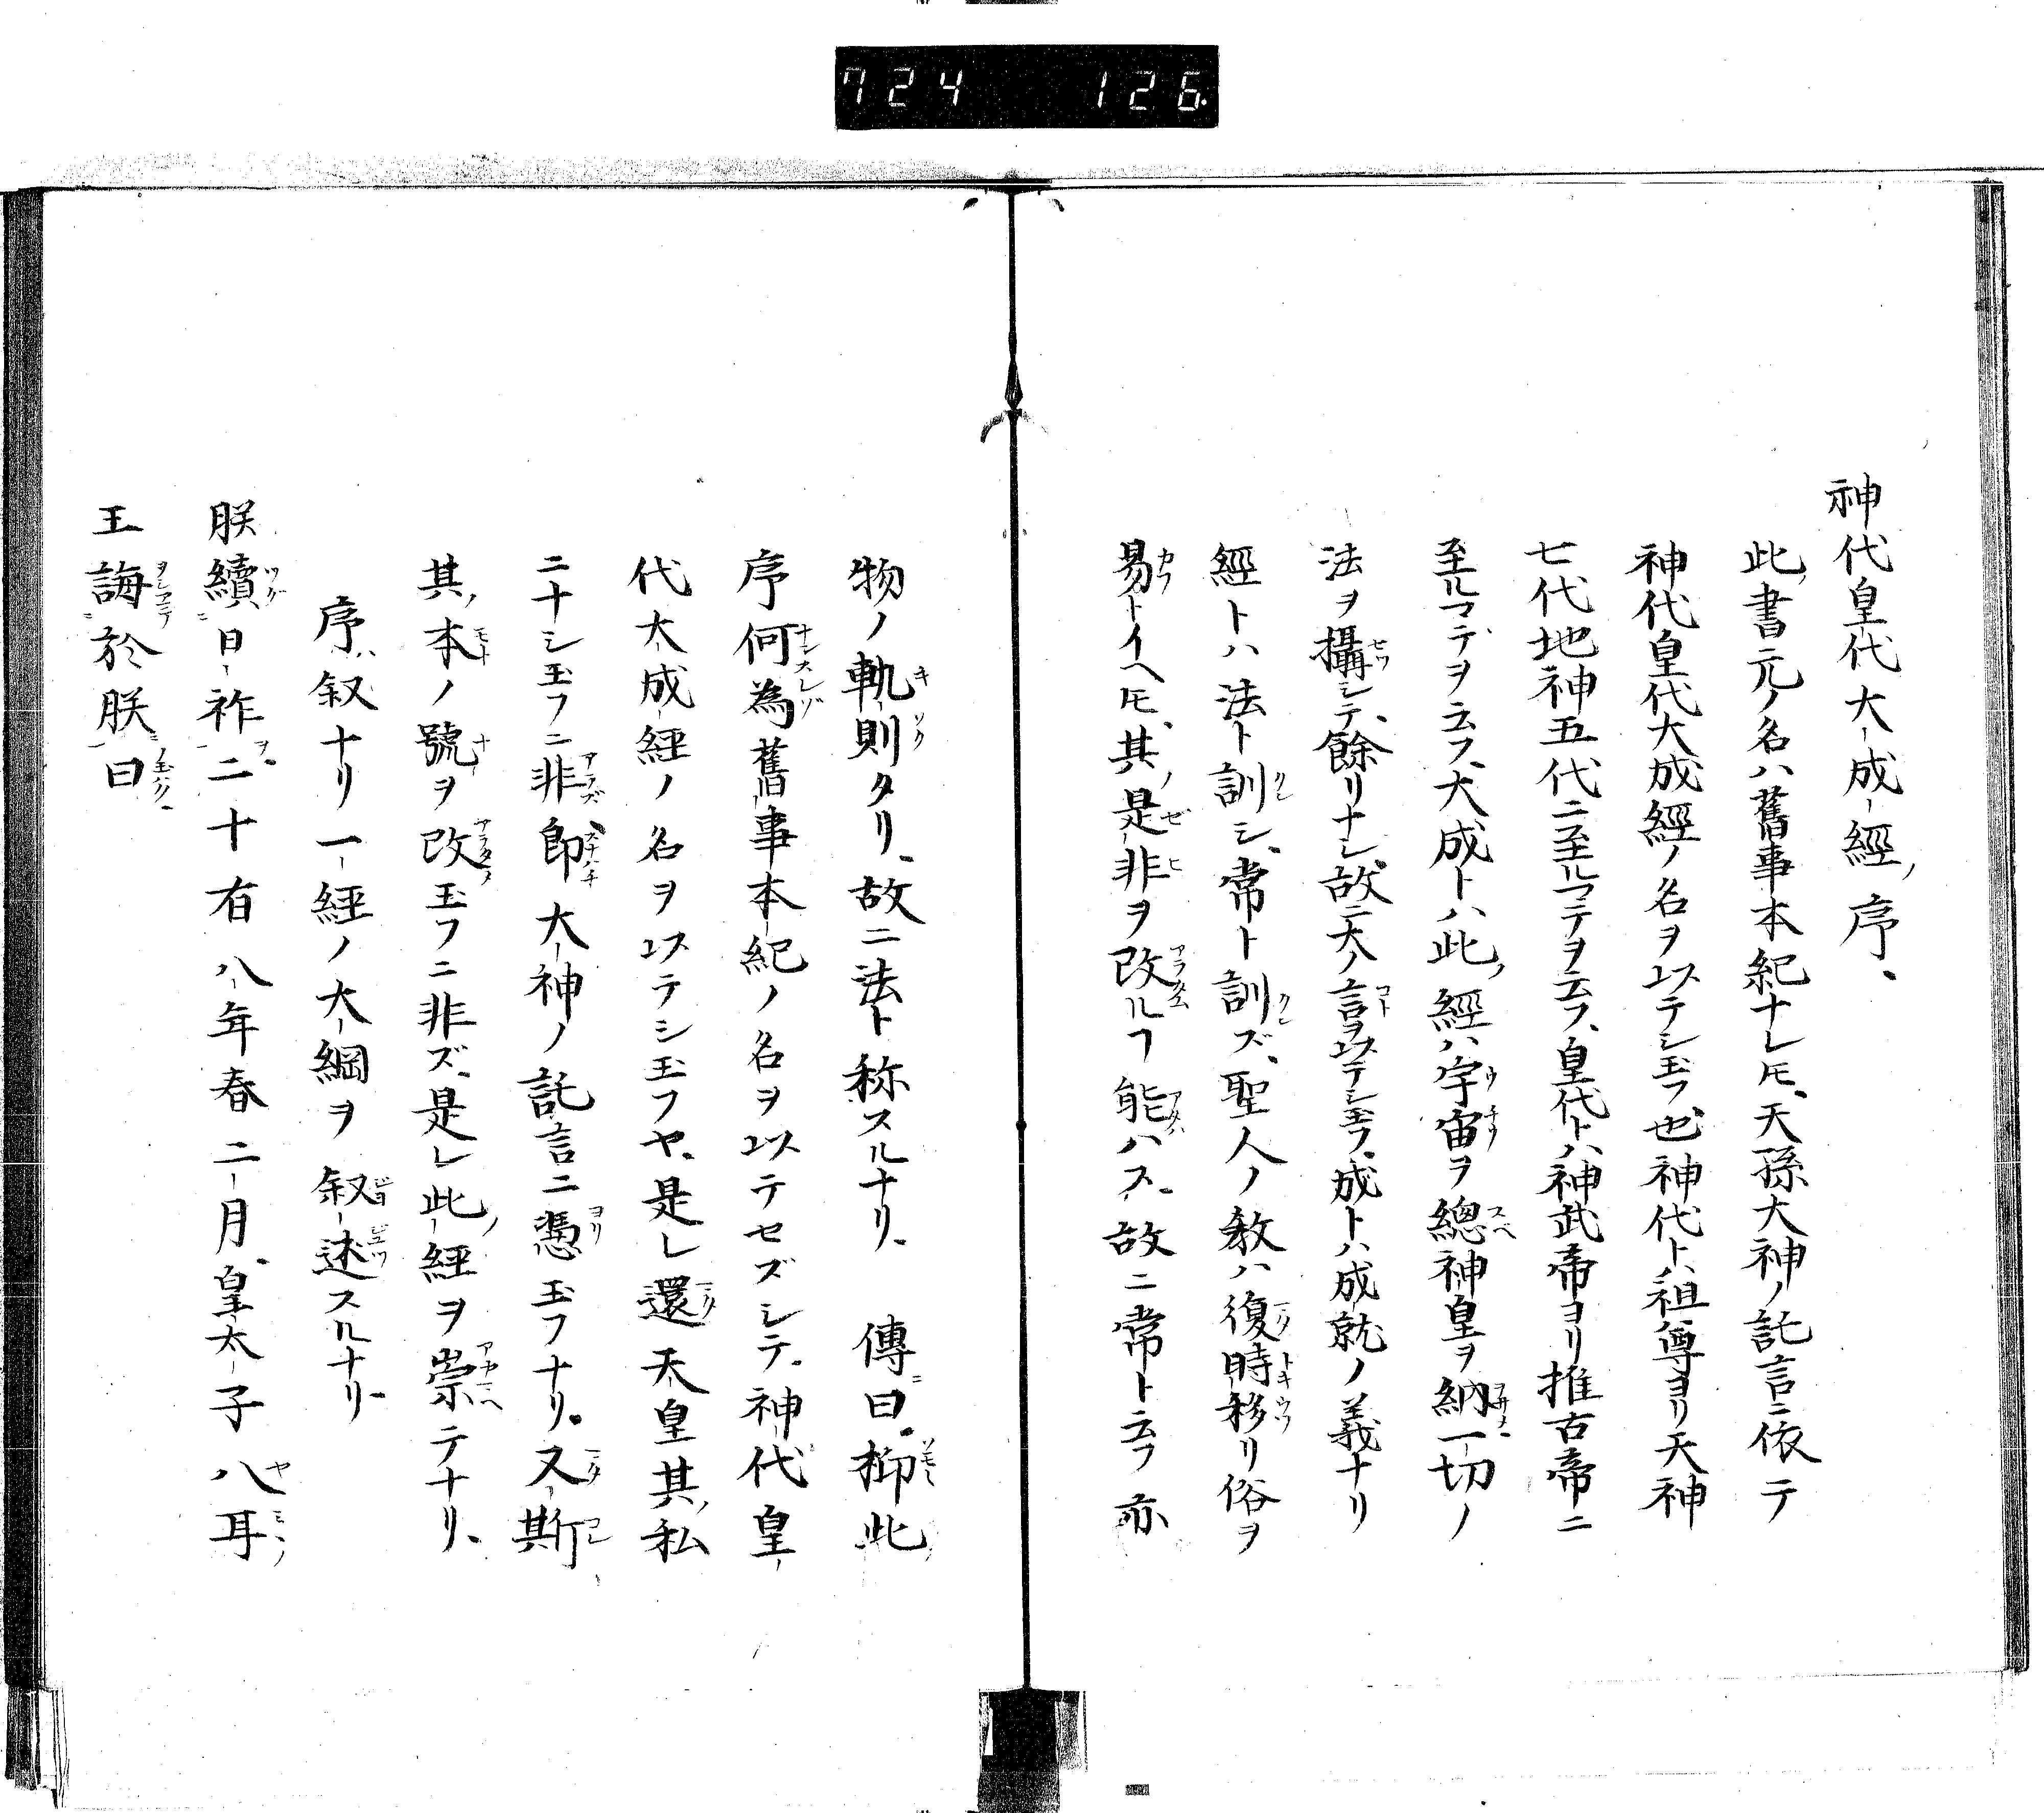 724 126
神代皇代大成經序、
此書元ノ名ハ舊事本紀ナレ𪜈、天孫大神ノ託言ニ依テ
神代皇代大成經ノ名ヲ以テシ玉フ也神代トハ祖尊ヨリ天神
七代地神五代ニ至ルマテヲ云フ、皇代トハ神武帝ヨリ推古帝ニ
至ルマデヲ云フ、大成トハ此ノ經ハ宇宙ヲ總神皇ヲ納一切ノ
法ヲ攝シテ、餘リナシ故ニ大ノ言ヲ以テシ玉フ、成トハ成就ノ義ナリ
經トハ法ト訓シ、常ト訓ズ、聖人ノ教ハ復時移リ俗ヲ
易トイヘ𪜈、其ノ是非ヲ改ルヿ能ハス、故ニ常ト云フ亦
物ノ軌則タリ、故ニ法ト称スルナリ、傳ニ曰、抑此ノ
序何為舊事本紀ノ名ヲ以テセズシテ、神代皇
代大成經ノ名ヲ以テシ玉フヤ、是レ還天皇其ノ私
ニナシ玉フニ非即大神ノ託言ニ憑玉フナリ、又斯
其ノ本ノ號ヲ改玉フニ非ズ、是レ此ノ經ヲ崇テナリ、
序ハ叙ナリ一經ノ大綱ヲ叙述スルナリ、
朕續日祚二十有八年春二月、皇太子八耳
王誨於朕曰